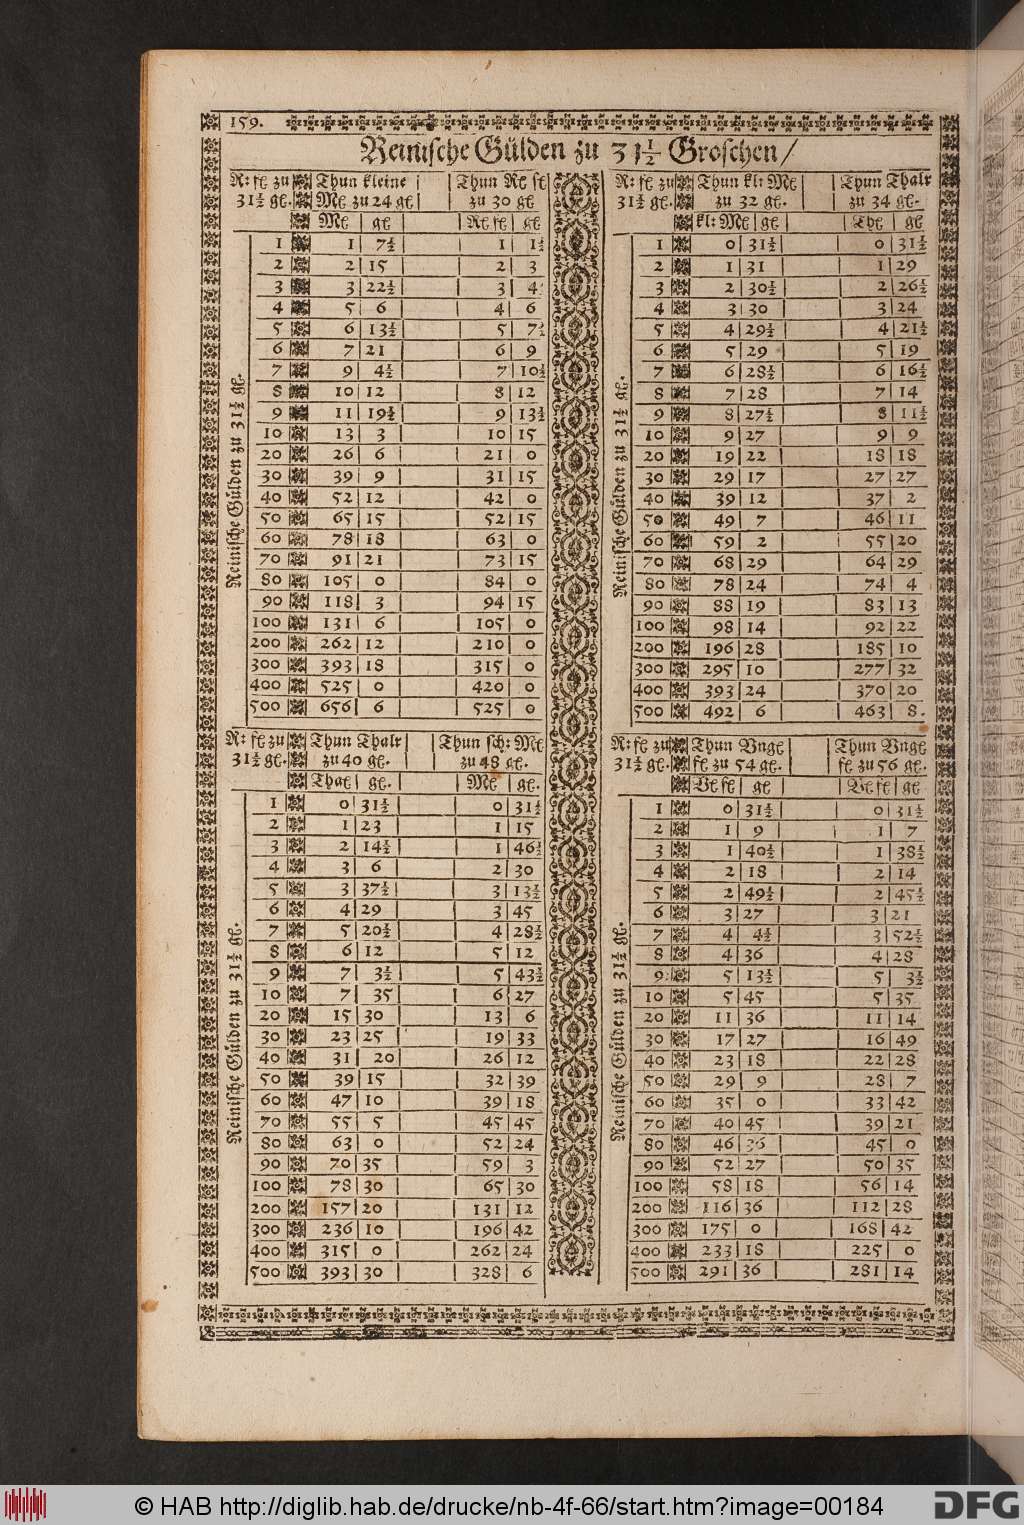 159.
Reinische Gülden zu 31½ Groschen/
R: fl zu Thun kleine Thun Re fl
31½ gl. Ml zu 24 gl zu 30 gl
Ml gl Rl fl gl
1 1 7½ 1 1½
2 2 15 2 3
3 3 22½ 3 4
4 5 6 4 6
5 6 13½ 5 7½
6 7 21 6 9
7 9 4½ 7 10½
8 10 12 8 12
9 11 19½ 9 13½
10 13 3 10 15
20 26 6 21 0
30 39 9 31 15
40 52 12 42 0
50 65 15 52 15
60 78 18 63 0
70 91 21 73 15
80 105 0 84 0
90 118 3 94 15
100 131 6 105 0
200 262 12 210 0
300 393 18 315 0
400 525 0 420 0
500 656 6 525 0
Reinische Gülden zu 31½ gl.
R: fl zu Thun kl: Ml Thun Thalr
31½ gl. zu 32 gl. zu 34 gl.
kl: Ml gl Thl gl
1 0 31½ 0 31½
2 1 31 1 29
3 2 30½ 2 26½
4 3 30 3 24
5 4 29½ 4 21½
6 5 29 5 19
7 6 28½ 6 16½
8 7 28 7 14
9 8 27½ 8 11½
10 9 27 9 9
20 19 22 18 18
30 29 17 27 27
40 39 12 37 2
50 49 7 46 11
60 59 2 55 20
70 68 29 64 29
80 78 24 74 4
90 88 19 83 13
100 98 14 92 22
200 196 28 185 10
300 295 10 277 32
400 393 24 370 20
500 492 6 463 8.
Reinische Gülden zu 31½ gl.
R: fl zu Thun Thalr Thun sch: Ml
31½ gl. zu 40 gl. zu 48 gl.
Thal gl. Ml gl.
1 0 31½ 0 31½
2 1 23 1 15
3 2 14½ 1 46½
4 3 6 2 30
5 3 37½ 3 13½
6 4 29 3 45
7 5 20½ 4 28½
8 6 12 5 12
9 7 3½ 5 43½
10 7 35 6 27
20 15 30 13 6
30 23 25 19 33
40 31 20 26 12
50 39 15 32 39
60 47 10 39 18
70 55 5 45 45
80 63 0 52 24
90 70 35 59 3
100 78 30 65 30
200 157 20 131 12
300 236 10 196 42
400 315 0 262 24
500 393 30 328 6
Reinische Gülden zu 31½ gl.
R: fl zu Thun Vngl Thun Vngl
31½ gl. fl zu 54 gl. fl zu 56 gl.
Vl fl gl Vl fl gl
1 0 31½ 0 31½
2 1 9 1 7
3 1 40½ 1 38½
4 2 18 2 14
5 2 49½ 2 45½
6 3 27 3 21
7 4 4½ 3 52½
8 4 36 4 28
9 5 13½ 5 3½
10 5 45 5 35
20 11 36 11 14
30 17 27 16 49
40 23 18 22 28
50 29 9 28 7
60 35 0 33 42
70 40 45 39 21
80 46 36 45 0
90 52 27 50 35
100 58 18 56 14
200 116 36 112 28
300 175 0 168 42
400 233 18 225 0
500 291 36 281 14
Reinische Gülden zu 31½ gl.
© HAB http://diglib.hab.de/drucke/nb-4f-66/start.htm?image=00184
DFG